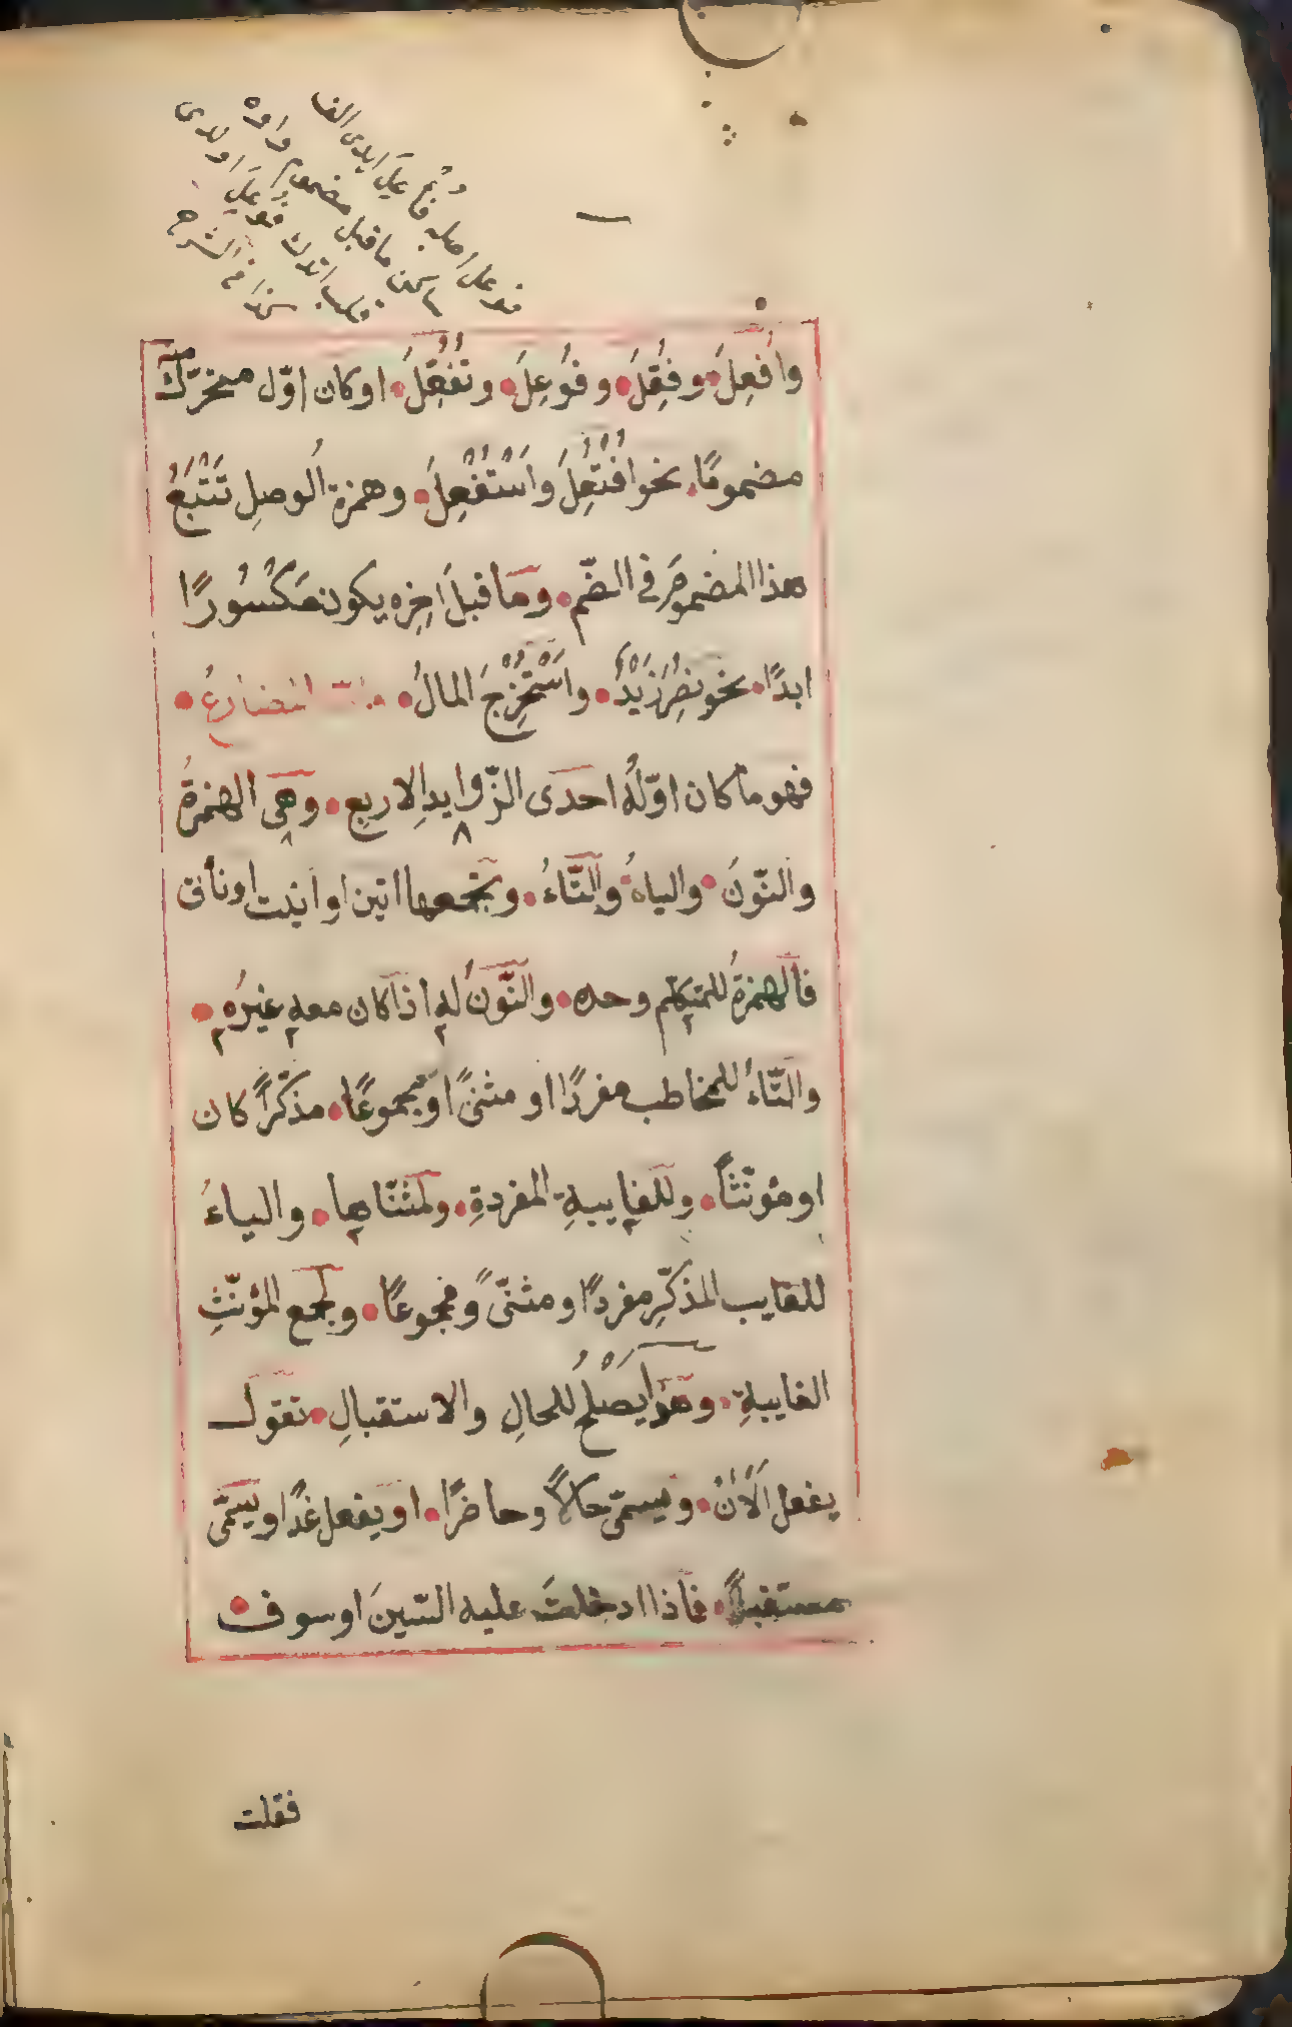 فوعل اصله فُاْعِلَ ايدى الف
ساكن ما قبل مضموم واوه
قلب اتدك فوعل اولدى
كذا فى الشرح
وافْعِلَ وفُعِّلَ وفُوعِلَ وتُفُعِّلَ اوكان اوّل متحرّك
مضمومًا نحو افْتُعِلَ واُسْتُفْعِلَ وهمزة الوصلِ تَتْبَعُ
هذا المضمومَ فى الضّم ومَا قبلَ اخِرِه يكون مَكْسُورًا
ابدًا نحو نُصِرَ زَيْدٌ واُسْتُخْرِجَ المالُ وامّا المضارعُ
فهو ما كان اوّلُهُ احدَى الزّوايدِ الاربعِ وهَى الهمزةُ
والنّونُ والياءُ والتّاءُ وتجمعها اتين او انيت او نأتى
فالهمزةُ للمتكلّم وحده والنّونُ له اذا كان معه غيرُه
والتّاءُ للمخاطب مفردًا او مثنىً او مجموعًا مذكّرًا كان
او مؤنّثاً وللغايبةِ المفردةِ ولمثنّاها والياءُ
للغايب المذكّرِ مفردًا ومثنىًّ ومجموعًا ولجمع المؤنّثِ
الغايبةِ وهو يَصْلُحُ للحالِ والاستقبالِ تقول
يفعل الاٰنَ ويسمّى حالاً وحاضرًا او يفعل غدًا ويسَمّى
مستقبلاً فاذا ادخلت عليه السّينَ او سوف
فقلت